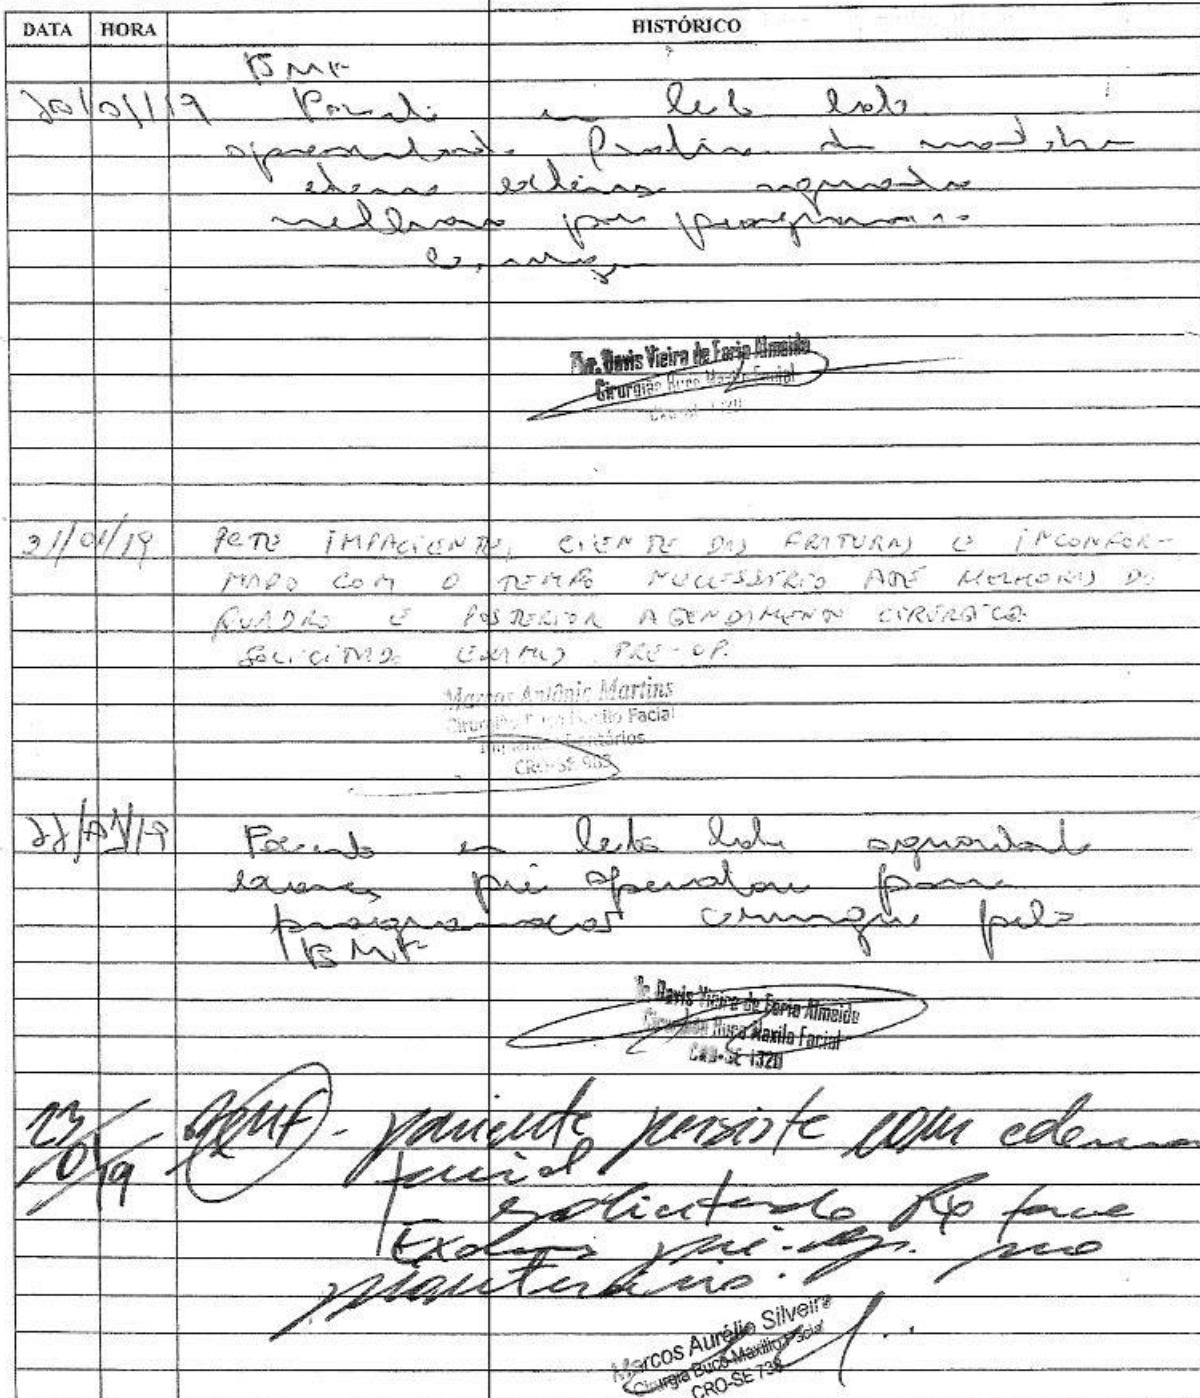 DATA HORA HISTÓRICO
BMF
20/01/19 Paciente em leito
apresentando fratura de
edema extenso aguarda
melhora para programar
cirurgia
Dr. Davis Vieira de Faria Almeida
Cirurgião Buco Maxilo Facial
21/01/19 PCTE IMPACIENTE, CIENTE DAS FRATURAS E INCONFOR-
MADO COM O TEMPO NECESSÁRIO ATÉ MELHORAS DO
QUADRO E POSTERIOR AGENDAMENTO CIRÚRGICO.
SOLICITADO EXAMES PRÉ-OP.
Marcos Antônio Martins
Cirurgião Buco Maxilo Facial
CRO-SE 985
22/01/19 Paciente em leito aguardando
exames pré operatorio para
programação cirurgia pela
BMF
Dr. Davis Vieira de Faria Almeida
Cirurgião Buco Maxilo Facial
CRO-SE 1320
23/01/19 BMF - paciente persiste com edema
facial
solicitado Rx face
Exames pré-op. no
prontuário.
Marcos Aurélio Silveira
Cirurgia Buco-Maxilo Facial
CRO-SE 738